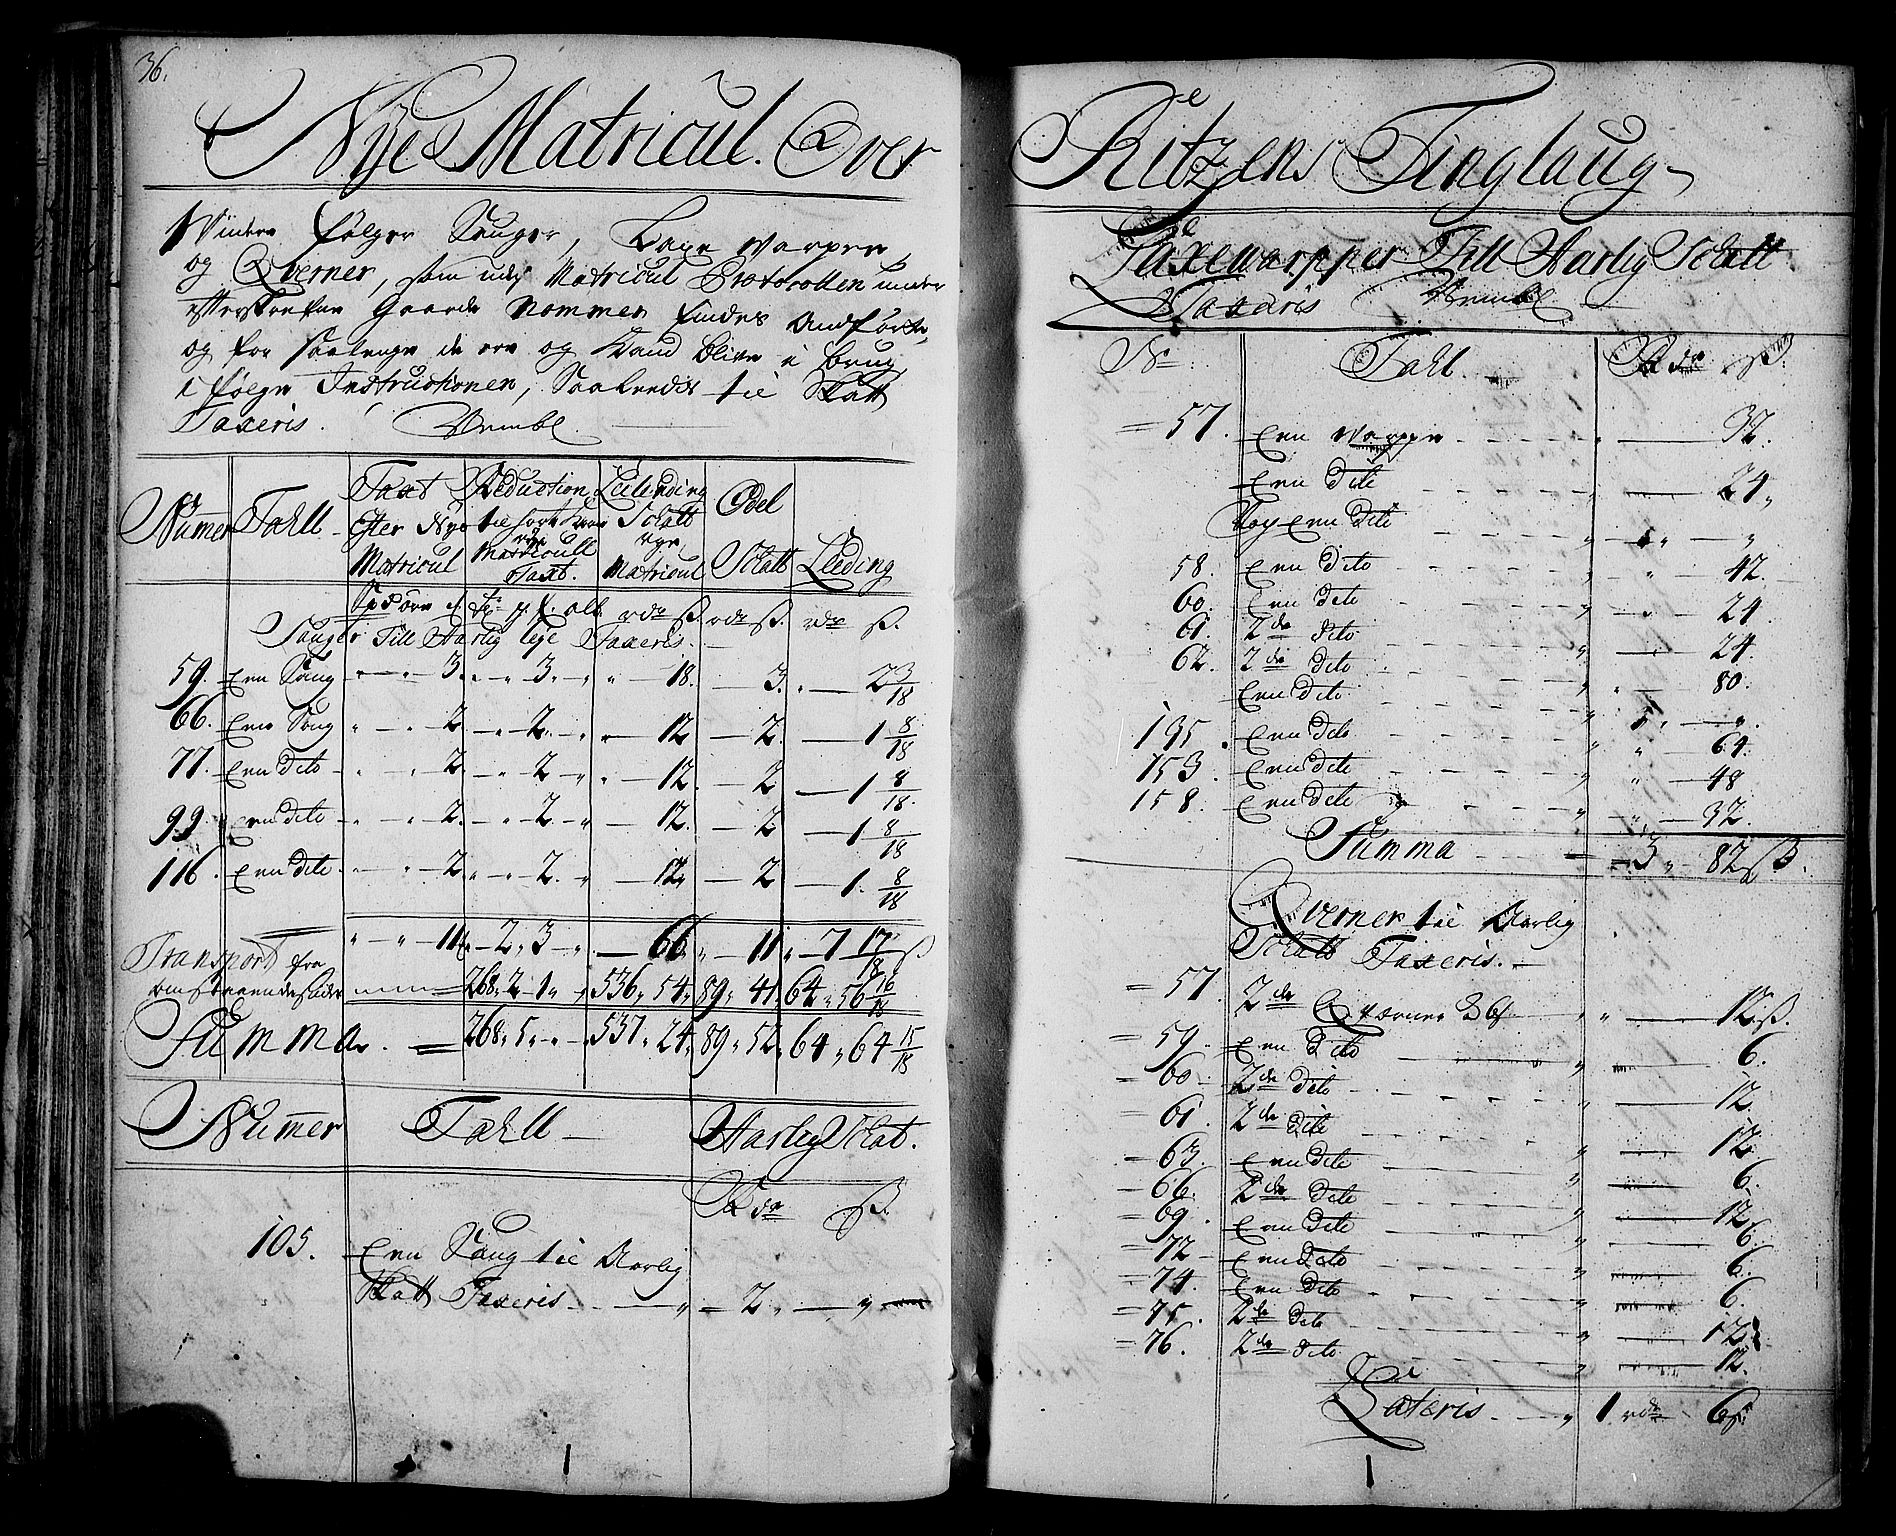 36.
Nÿe Matricul. Over
Videre følger Sauger, Laxe warper
og Qverner, som udj Matricul Protocollen under
efterskrefne Gaarde Nommer findes Andförte,
og for saalenge de ere og kand blive i brug,
i følge Instructionen, Saaledis til Skatt
Taxeris. Nembl.
Nümer Tahll Taxt efter Nye Matricul Reduction til forte Matricull Taxt. Leilending Schatt Nye Matricul Odel Schatt Leeding
rdr ß. rdr ß. rdr ß.
Sauger Till Aarlig leje Taxeris.
59. Een Saug 3. 3. 18. 3. 2 3/18
66. Een Saug 2. 2. 12 2. 1 8/18
77. Een dito 2. 2 12. 2 1 8/18.
99. Een dito 2. 2. 12. 2 1 8/18
116. Een dito 2. 2. 12 2 1. 8/18
11 2, 3 66 11 7 17/18 ß
Transport fra
268, 2 1 536, 54, 89, 41, 64, 56 16/18
Summa. 268, 5, 537, 24, 89, 52, 64, 64 15/18
Nümer Tahll Aarlig Schat.
Rdr ß.
105. Een Saug til Aarlig
Skatt Taxeris. 2
Ritzens Tinglaug
Laxewarpper Till Aarlig Schatt
Taxeris Nembl.
No. Tahl. Rdr ß.
57. Een Warpe 32.
Een dito 24,
Noch Een dito 1
58. Een dito 42.
60. Een dito 24
61. 2de dito 24
62. 2de dito 80.
Een dito
135. Een dito 64.
153. Een dito 48
158. Een dito 32.
Summa 3, 82 ß.
Qverner til Aarlig
Schatt Taxeris.
57. 2de Qverner 12 ß.
59. Een dito 6.
60 2de dito 12.
61. 2de dito 12.
63. Een dito 6.
66. 2de dito 12.
69. Een dito 6.
72 Een dito 6.
74. Een dito 6.
75. 2de dito 12.
76. 2de dito 12.
Lateris. 1 rdr 6 ß.